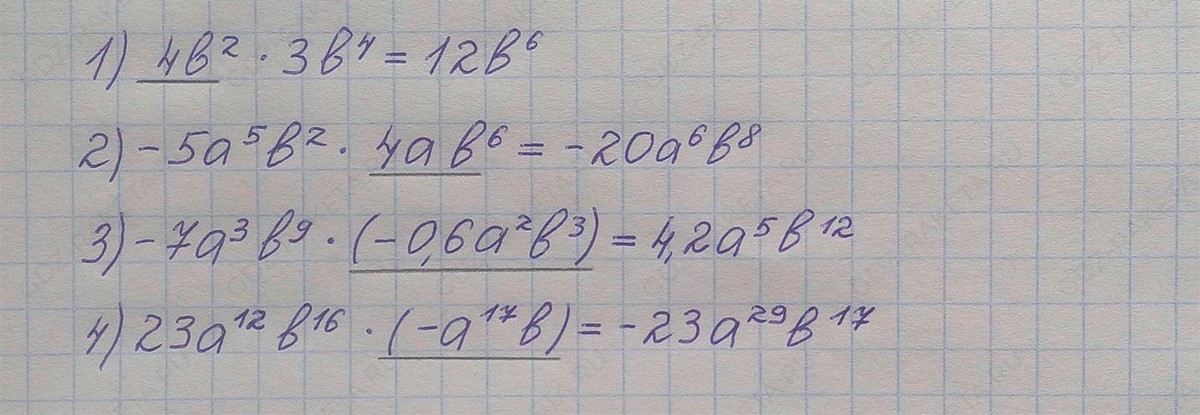 1) 4b² · 3b⁴ = 12b⁶
2) -5a⁵b² · 4ab⁶ = -20a⁶b⁸
3) -7a³b⁹ · (-0,6a²b³) = 4,2a⁵b¹²
4) 23a¹²b¹⁶ · (-a¹⁷b) = -23a²⁹b¹⁷